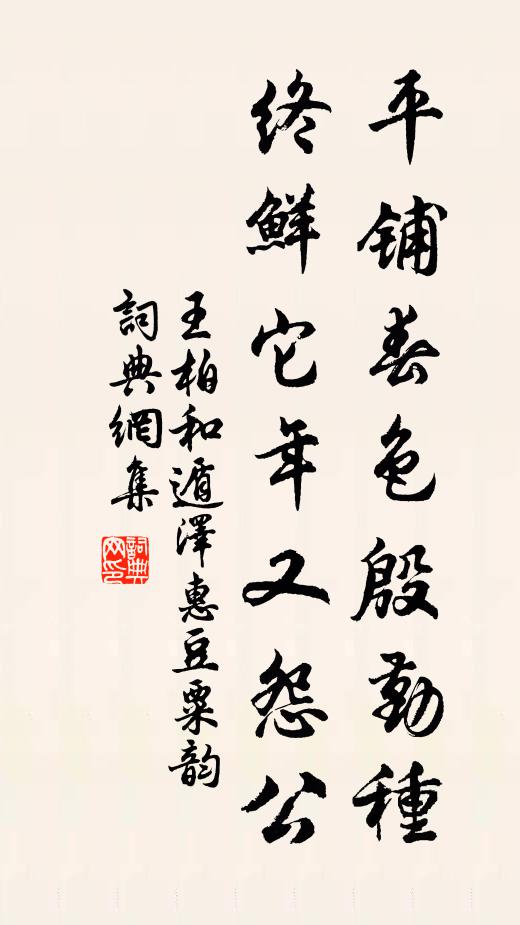 平鋪春色殷勤種
終鮮它年又怨公
王柏和遁澤惠豆粟韵
詞典網集
詞典网印